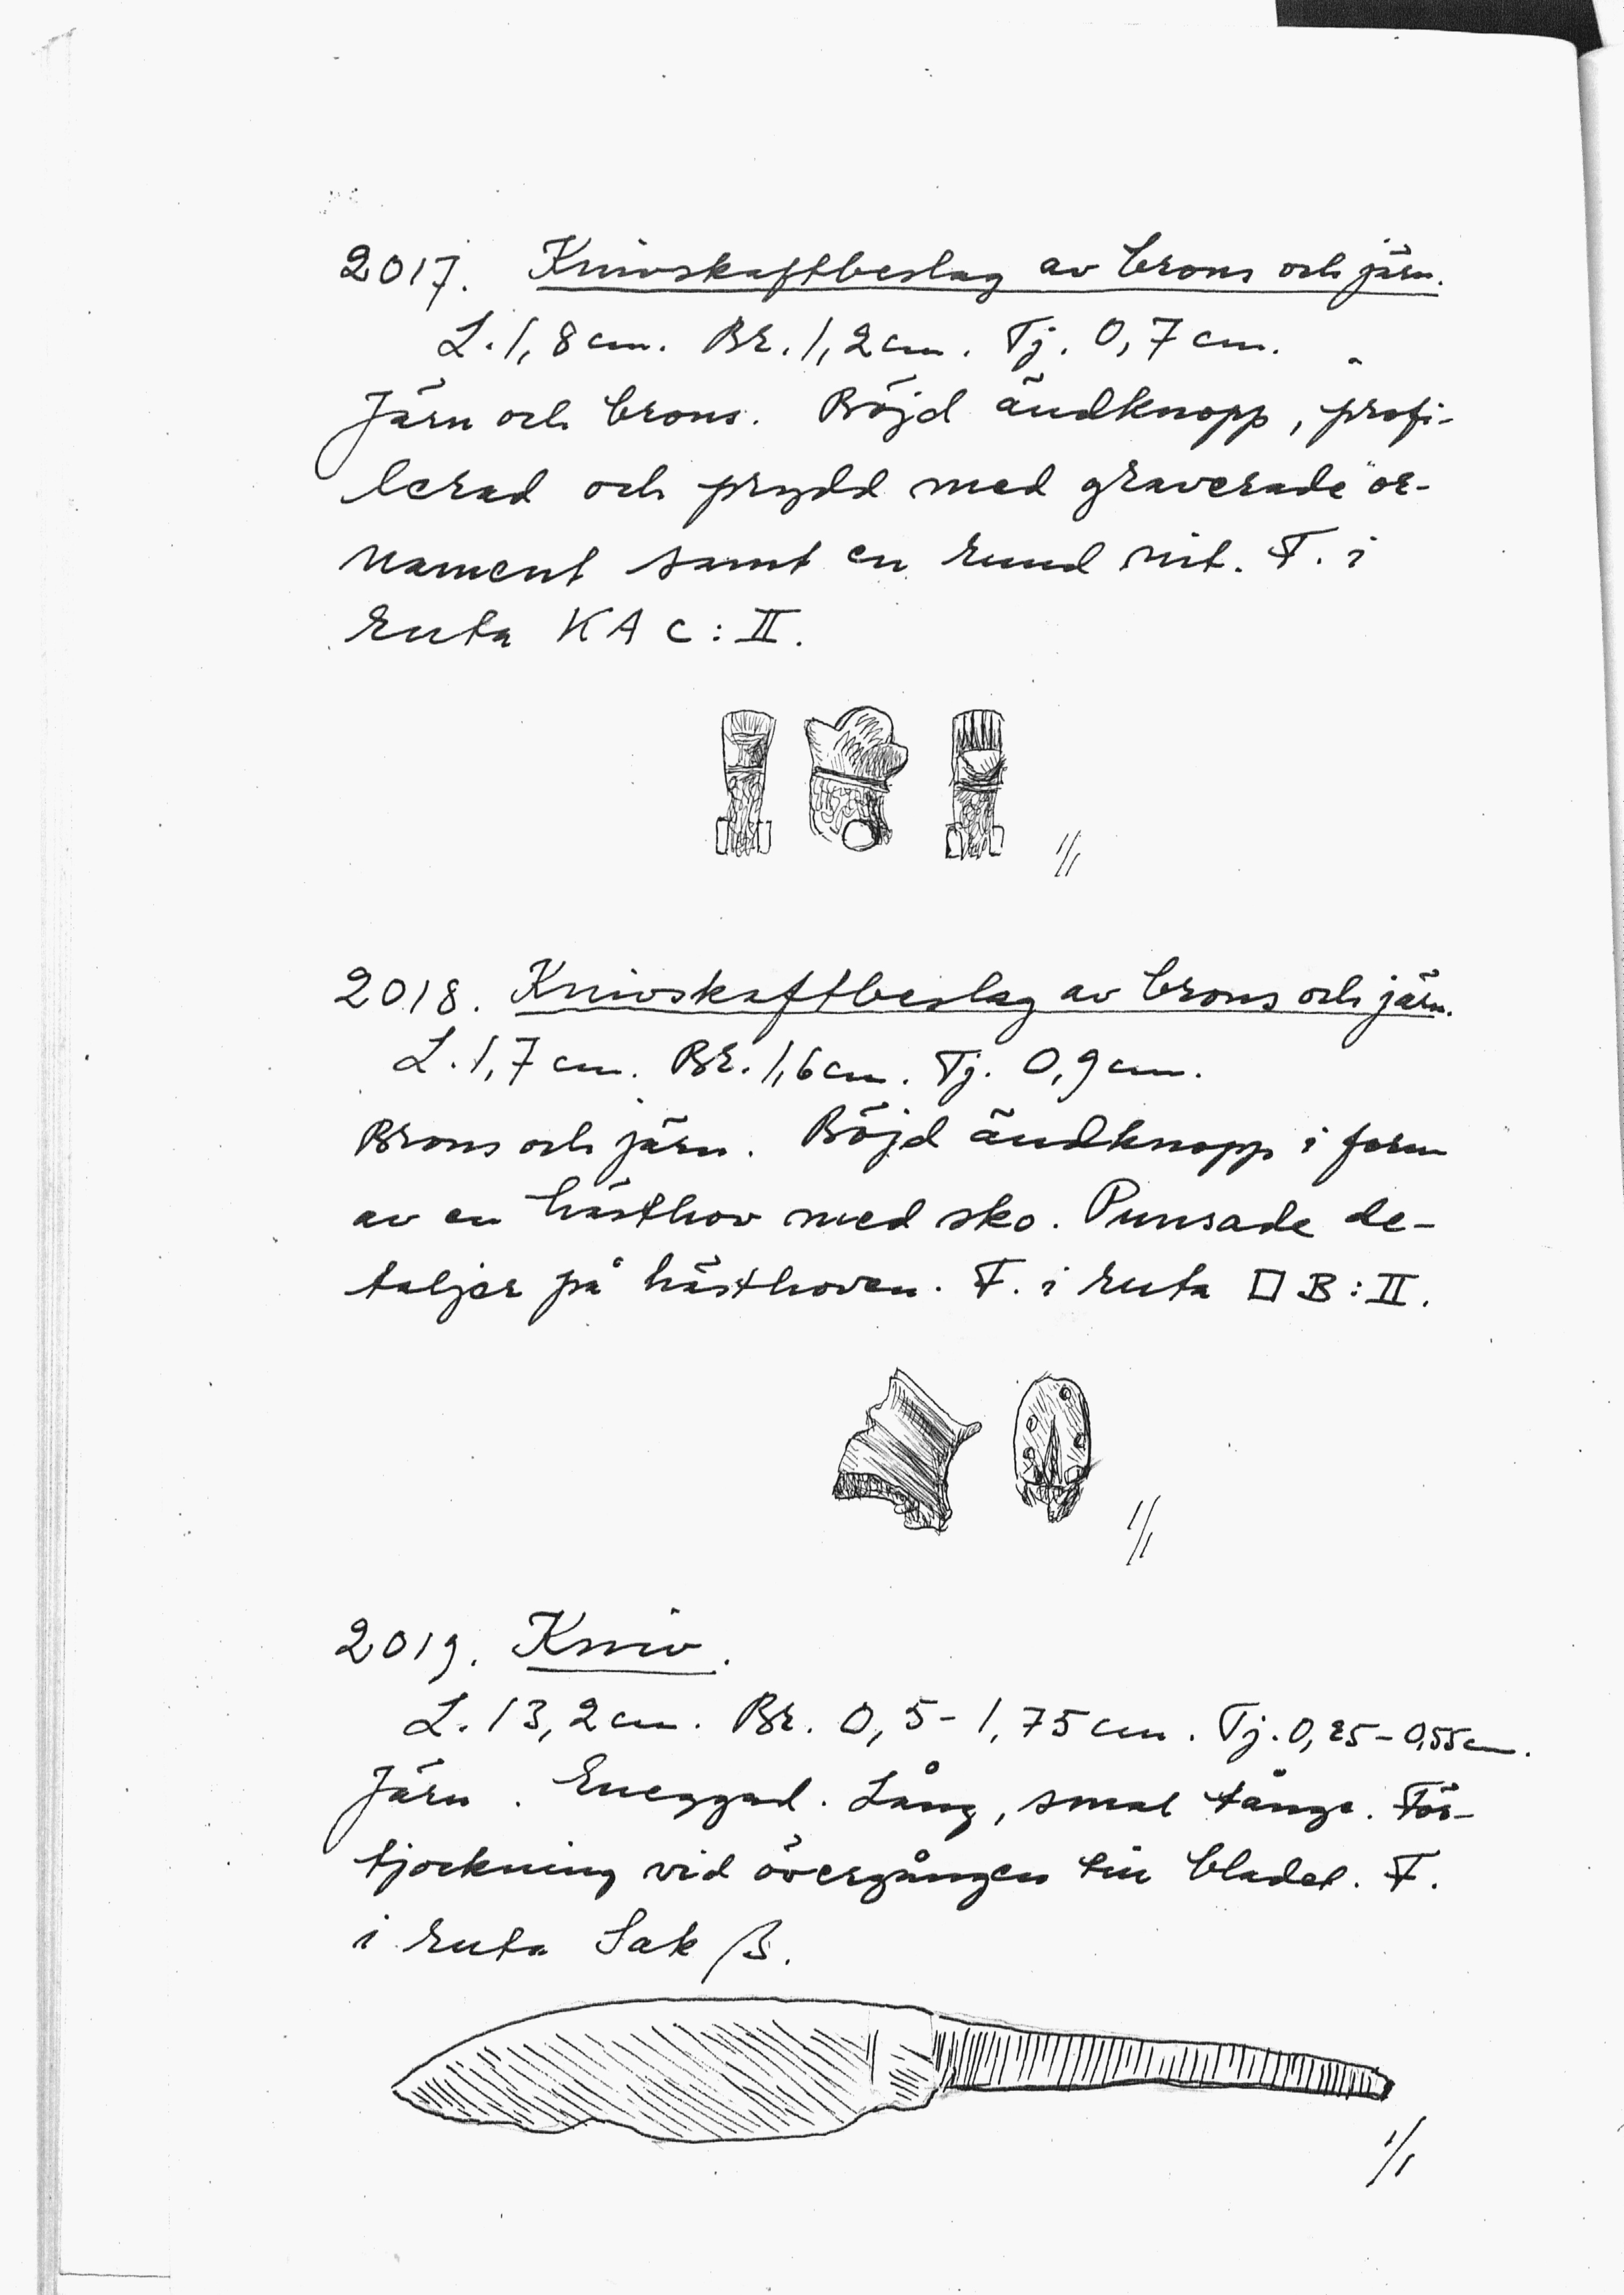 2017. Knivskaftbeslag av brons och järn.
L. 1,8 cm. Br. 1,2 cm. Tj. 0,7 cm.
Järn och brons. Böjd ändknopp, profi-
lerad och prydd med graverade or-
nament samt en rund nit. F. i
ruta KA C : II.
1/1
2018. Knivskaftbeslag av brons och järn.
L. 1,7 cm. Br. 1,6 cm. Tj. 0,9 cm.
Brons och järn. Böjd ändknopp i form
av en hästhov med sko. Punsade de-
taljer på hästhoven. F. i ruta □ B : II.
1/1
2019. Kniv.
L. 13,2 cm. Br. 0,5 - 1,75 cm. Tj. 0,25 - 0,55 cm.
Järn. Eneggad. Lång, smal tånge. För-
tjockning vid övergången till bladet. F.
i ruta Sak β.
1/1